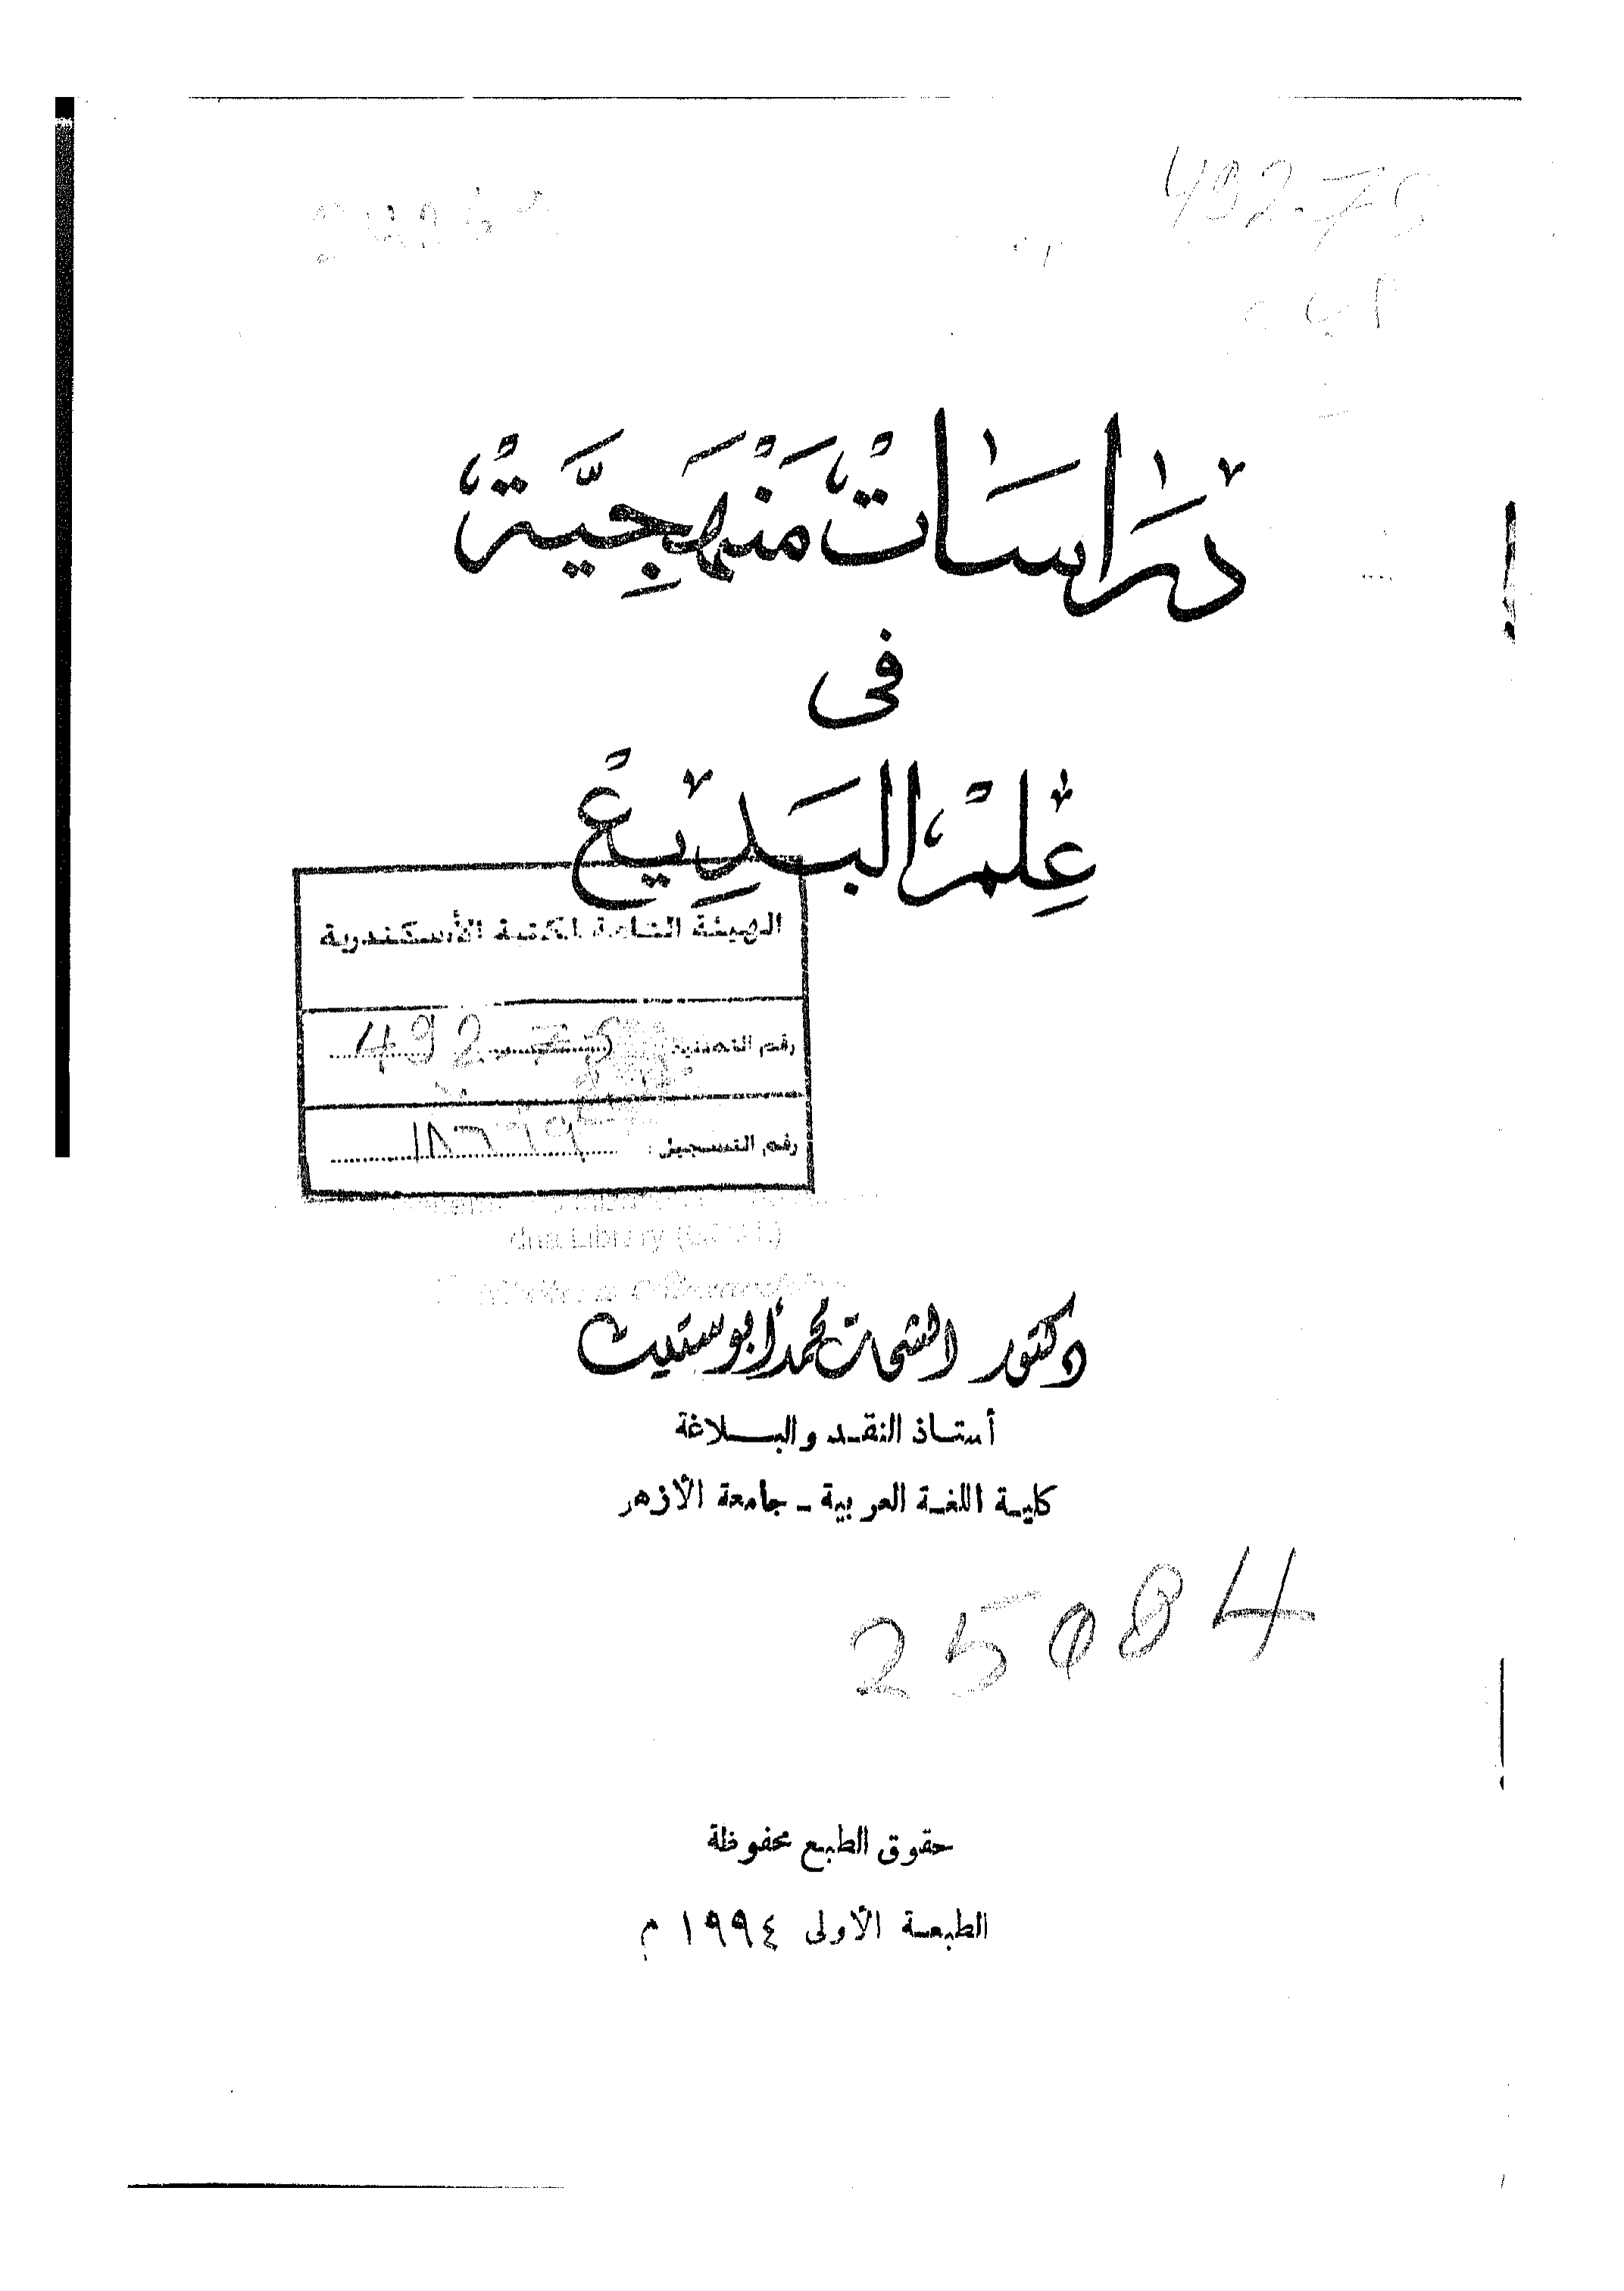 492.75
دِرَاسَاتٌ مَنْهَجِيَّةٌ
فى
عِلْمِ البَدِيعْ
الهيئة العامة لمكتبة الأسكندرية
رقم التصنيف 492.75
رقم التسجيل:
دكتور الشحات محمد أبوستيت
أستاذ النقد والبلاغة
كلية اللغة العربية - جامعة الأزهر
25084
حقوق الطبع محفوظة
الطبعة الأولى ١٩٩٤ م